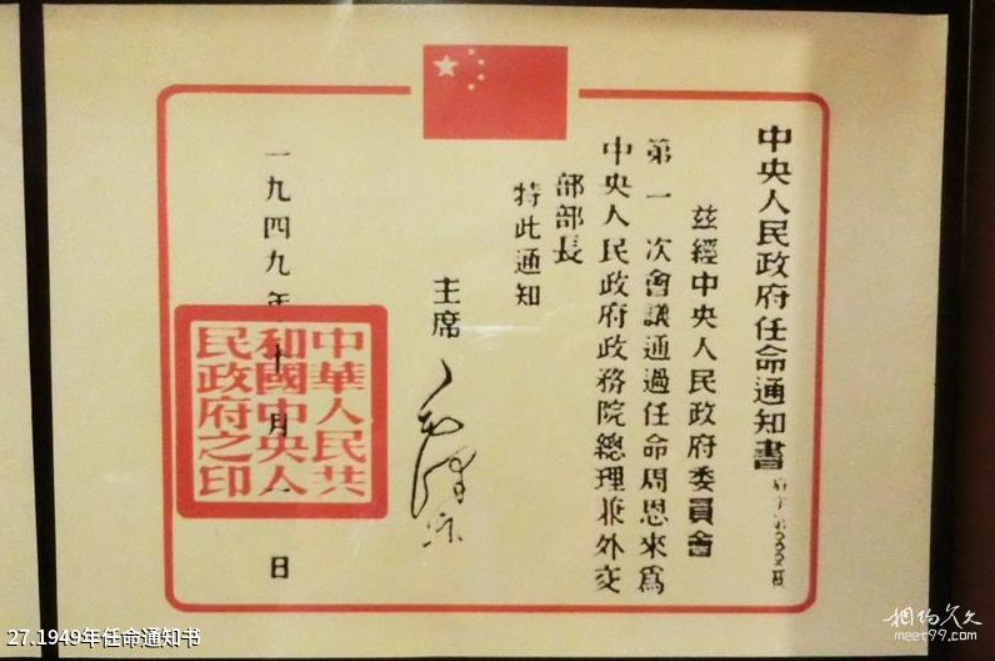 中央人民政府任命通知書
茲經中央人民政府委員會
第一次會議通過任命周恩來為
中央人民政府政務院總理兼外交
部部長
特此通知
主席 毛澤東
一九四九年十月一日
中華人民共
和國中央人
民政府之印
27.1949年任命通知书
相约久久
meet99.com